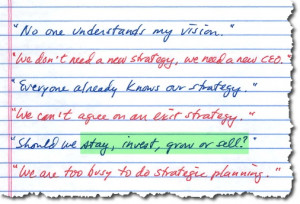 "No one understands my vision."
"We don't need a new strategy, we need a new CEO."
"Everyone already knows our strategy."
"We can't agree on an exit strategy."
"Should we stay, invest, grow or sell?"
"We are too busy to do strategic planning."